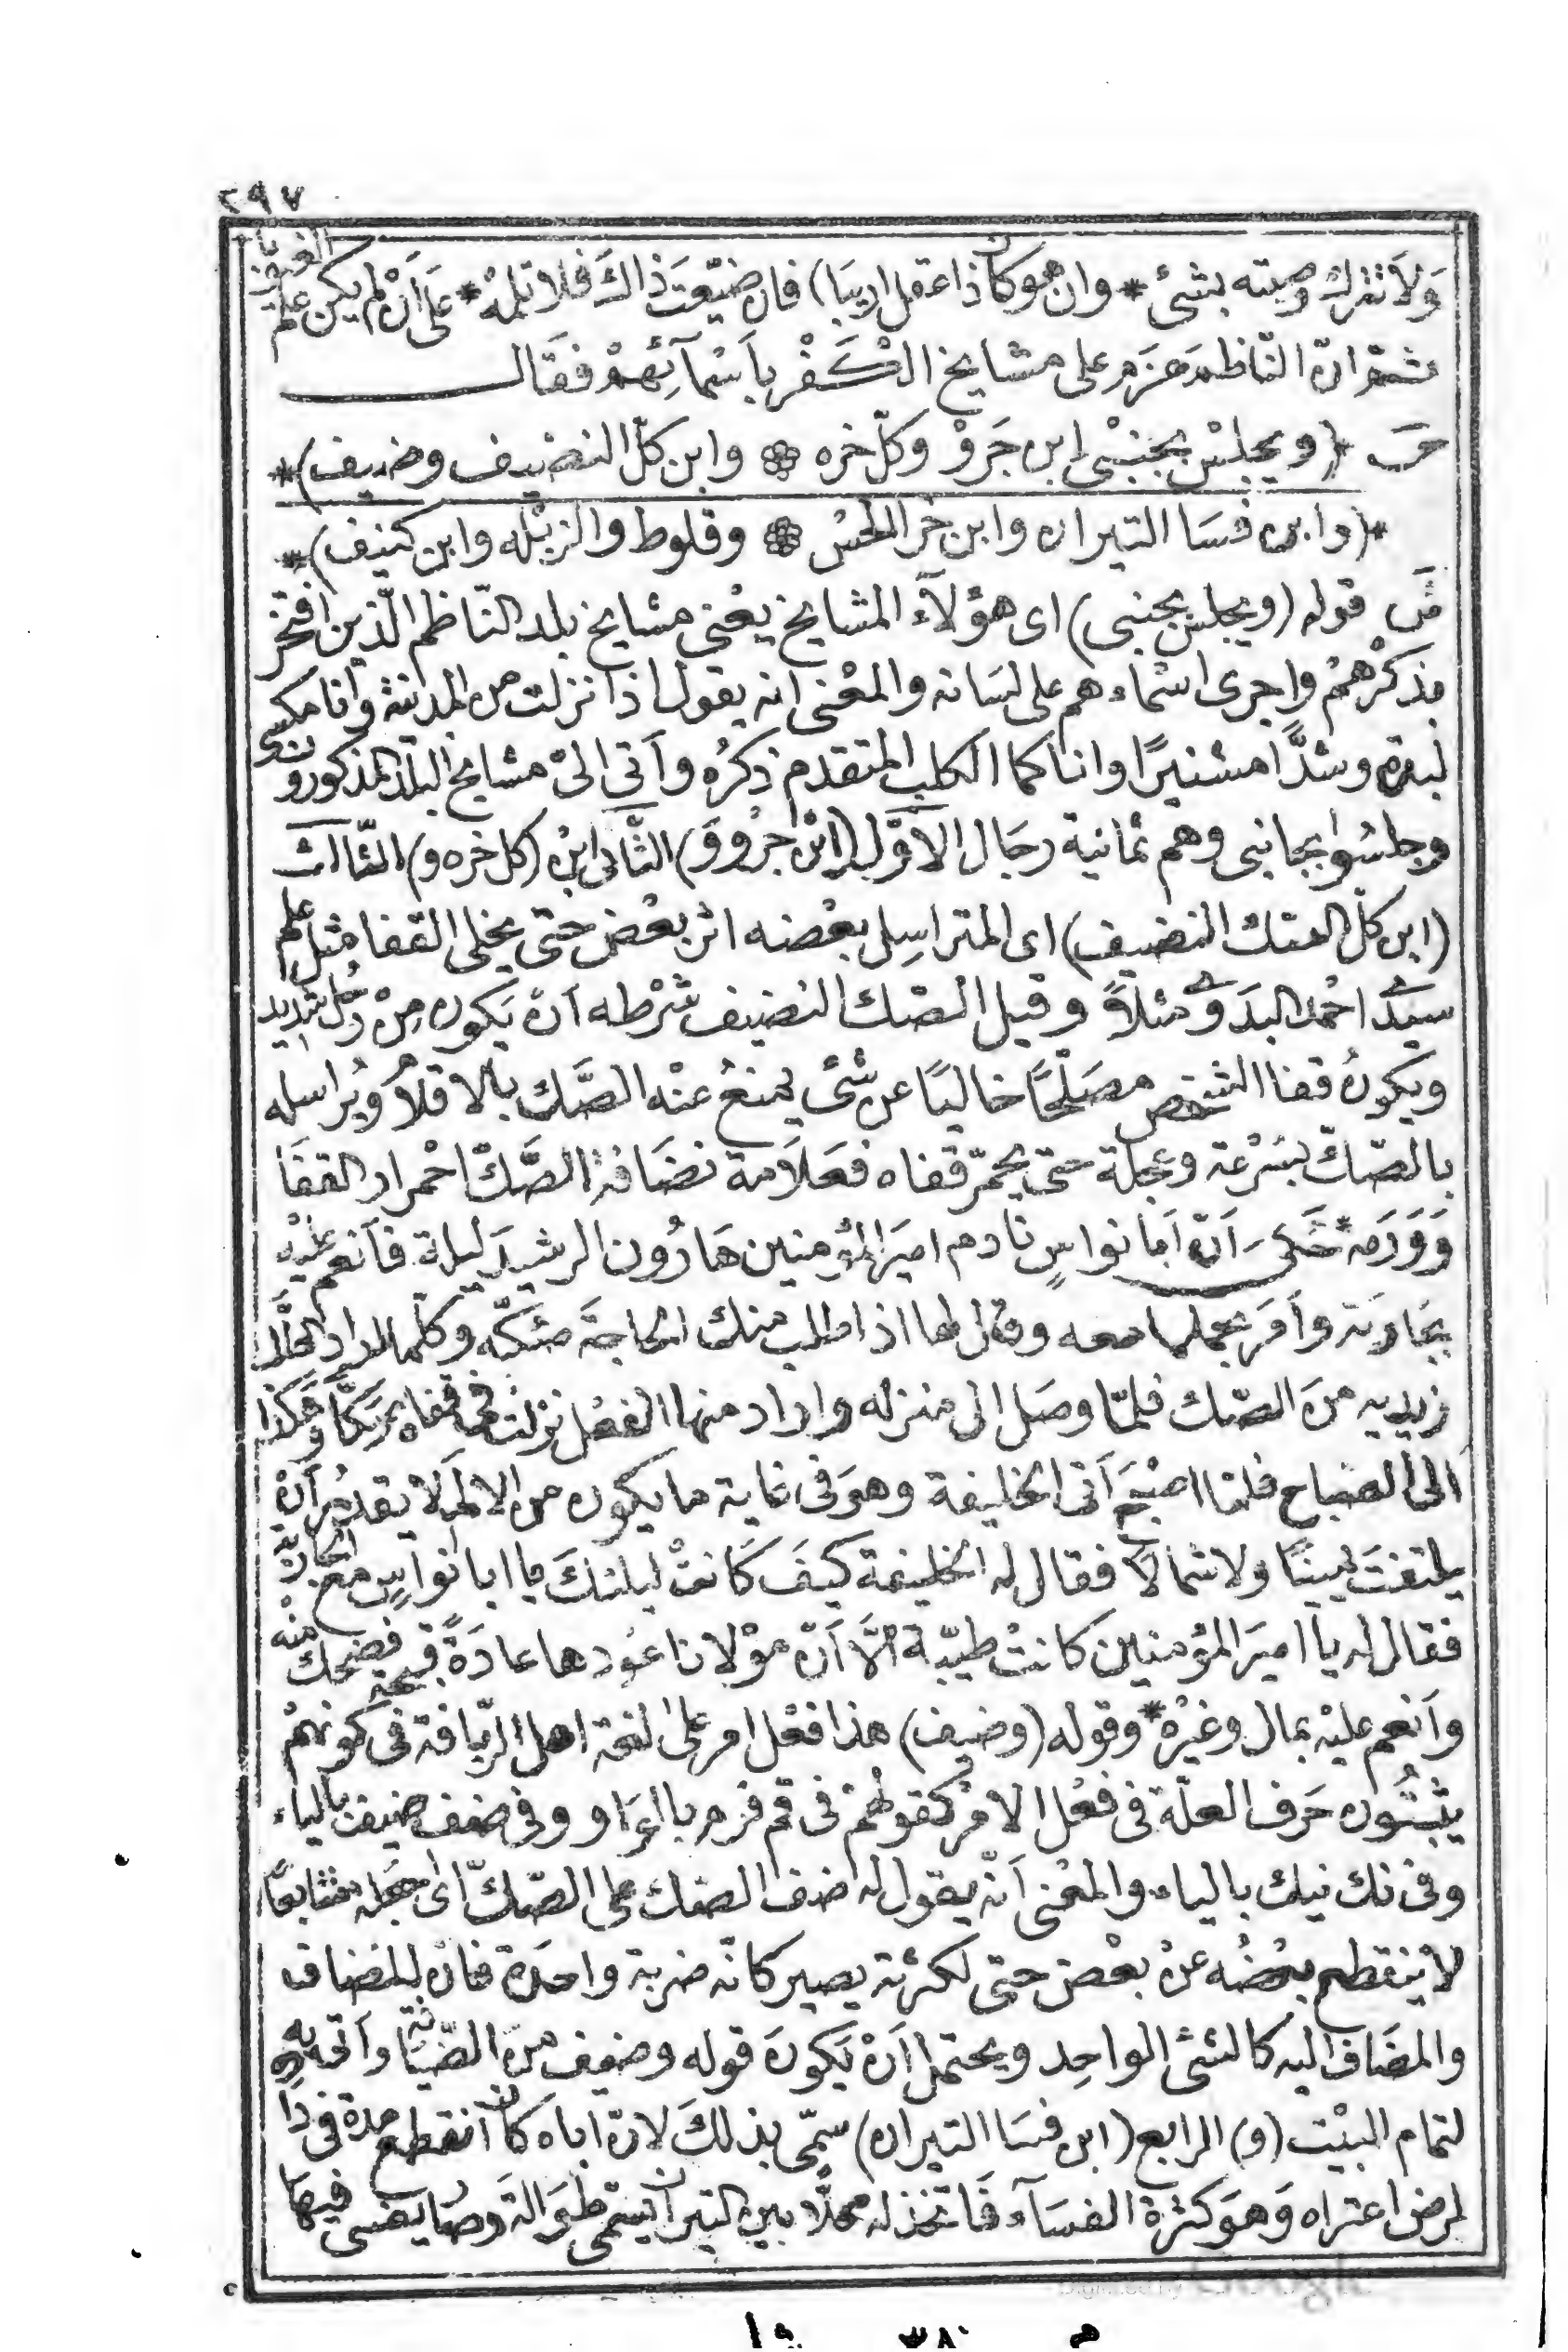 ٢٩٧
ولا تترك وصيته بشئ * وان هو كان ذا عقل اريبا) فان ضيّعت ذاك فلا تلمْه * على أن لم يكن علم الغيب
ثمّ انّ الناظم عزم على مشايخ الكَفْر بأسْمآئهمْ فقال
صَ *(ويجلسْ بجنبْى ابن جَروْ وكلّ خره ۞ وابن كلّ النضيف وضيف)*
*(وابن فسَا التيران وابن خرا الحسْ ۞ وقلوط والزبْله وابن كنيف)*
شَ قوله (ويجلس بجنبى) اى هؤلآء المشايخ يعْنى مشايخ بلد النّاظم الّذين افتخر
بذكْرهمْ واجرى اسْماءهم على لسَانه والمعْنى انه يقول اذا نزلت من المدينة وأنا مكسى
لبدة وشدًّا مشنيرًا وانا كما الكلب المتقدم ذكرُه وأتى الىّ مشايخ البلد المذكورون
وجلسُوا بجانبى وهم ثمانية رجَال الأوّل (ابْن جرْو وَ) الثّانى ابنُ (كل خره و) الثّالث
(ابن كلّ الصّك النضيف) اى المتراسِل بعْضه اثر بعْض حتّى يخلى القفا مثل علم
سيدى احْمد البدَوى مثلاً وقيل الصّك النضيف شرْطه أن يَكون مِنْ رجُل شديد
ويكونُ قفا الشخص مصَلّحًا خاليًا عن شئ يمنعُ عنْه الصَّك بالا قلاً ويُراسله
بالصّك بسُرْعة وعجلة حتّى يحمّر قفاه فعَلاَمة نضَافة الصَّكّ احْمرار القفَا
وَوَرَمه * حَكى أنّ أبا نواسٍ نادم اميرَ المؤمنين هَارُون الرشيدَ ليلة فأنعم عليْه
بجَاريَة وأمَر بحملها معه وقال لها اذا طلب منك الحاجة صُكّيه وكلّما اراد الحظّ
زيديه منَ الصّك فلمّا وصَل الى منزله واراد منها الفعْل نزلت فى قفاه صَكًّا وهكذا
الى الصّباح فلمّا اصْبح أتى الخليفة وهوَ فى غاية ما يكون من الالم لا يقدرُ أنْ
يلتفتَ يمينًا ولا شمالاً فقال له الخليفة كيفَ كَانتْ ليلتكَ يا ابا نواسٍ مع الجارية
فقال له يا اميرَ المؤمنين كانتْ طيّبة الاَّ أنّ موْلانا عوّدها عادَةً قبيحة فضحكَ منْه
وأنعم عليْه بمال وغيْره * وقوله (وضيف) هذا فعْل امر على لغة اهل الرّيافة فى كونهمْ
يثبتُون حَرف العلّة فى فعْل الامْر كقولهمْ فى قم قوم بالوَاو وفى ضف ضيف بالياء
وفى نك نيك بالياء والمعْنى أنّه يقول له اضف الصّك على الصّكّ اى اجْعله متتابعًا
لا ينْقطع بعْضُه عنْ بعْض حتّى لكثرته يصير كأنّه ضربة واحدَة فانّ للمضاف
والمضَاف اليه كالشئ الواحِد ويحتمل أنْ يَكونَ قوله وضيف منَ الضّيافة وأتى به
لتمام البيْت (و) الرابع (ابن فسَا التيران) سمّى بذلكَ لانّ اباه كان انقطع مدة فى دا
لمرض اعتراه وَهوَ كثرة الفسَآء فَاتّخذ له محلاًّ بين التيران يسَمّى طوَالة وصَار يفسى فيهَا